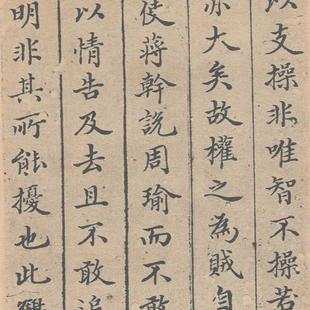 以支操非唯智不操若
亦大矣故權之為賊自
使蔣幹說周瑜而不敢
以情告及去且不敢追
明非其所能擾也此